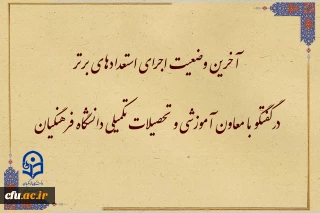 آخرین وضعیت اجرای استعدادهای برتر
در گفتگو با معاون آموزشی و تحصیلات تکمیلی دانشگاه فرهنگیان
cfu.ac.ir